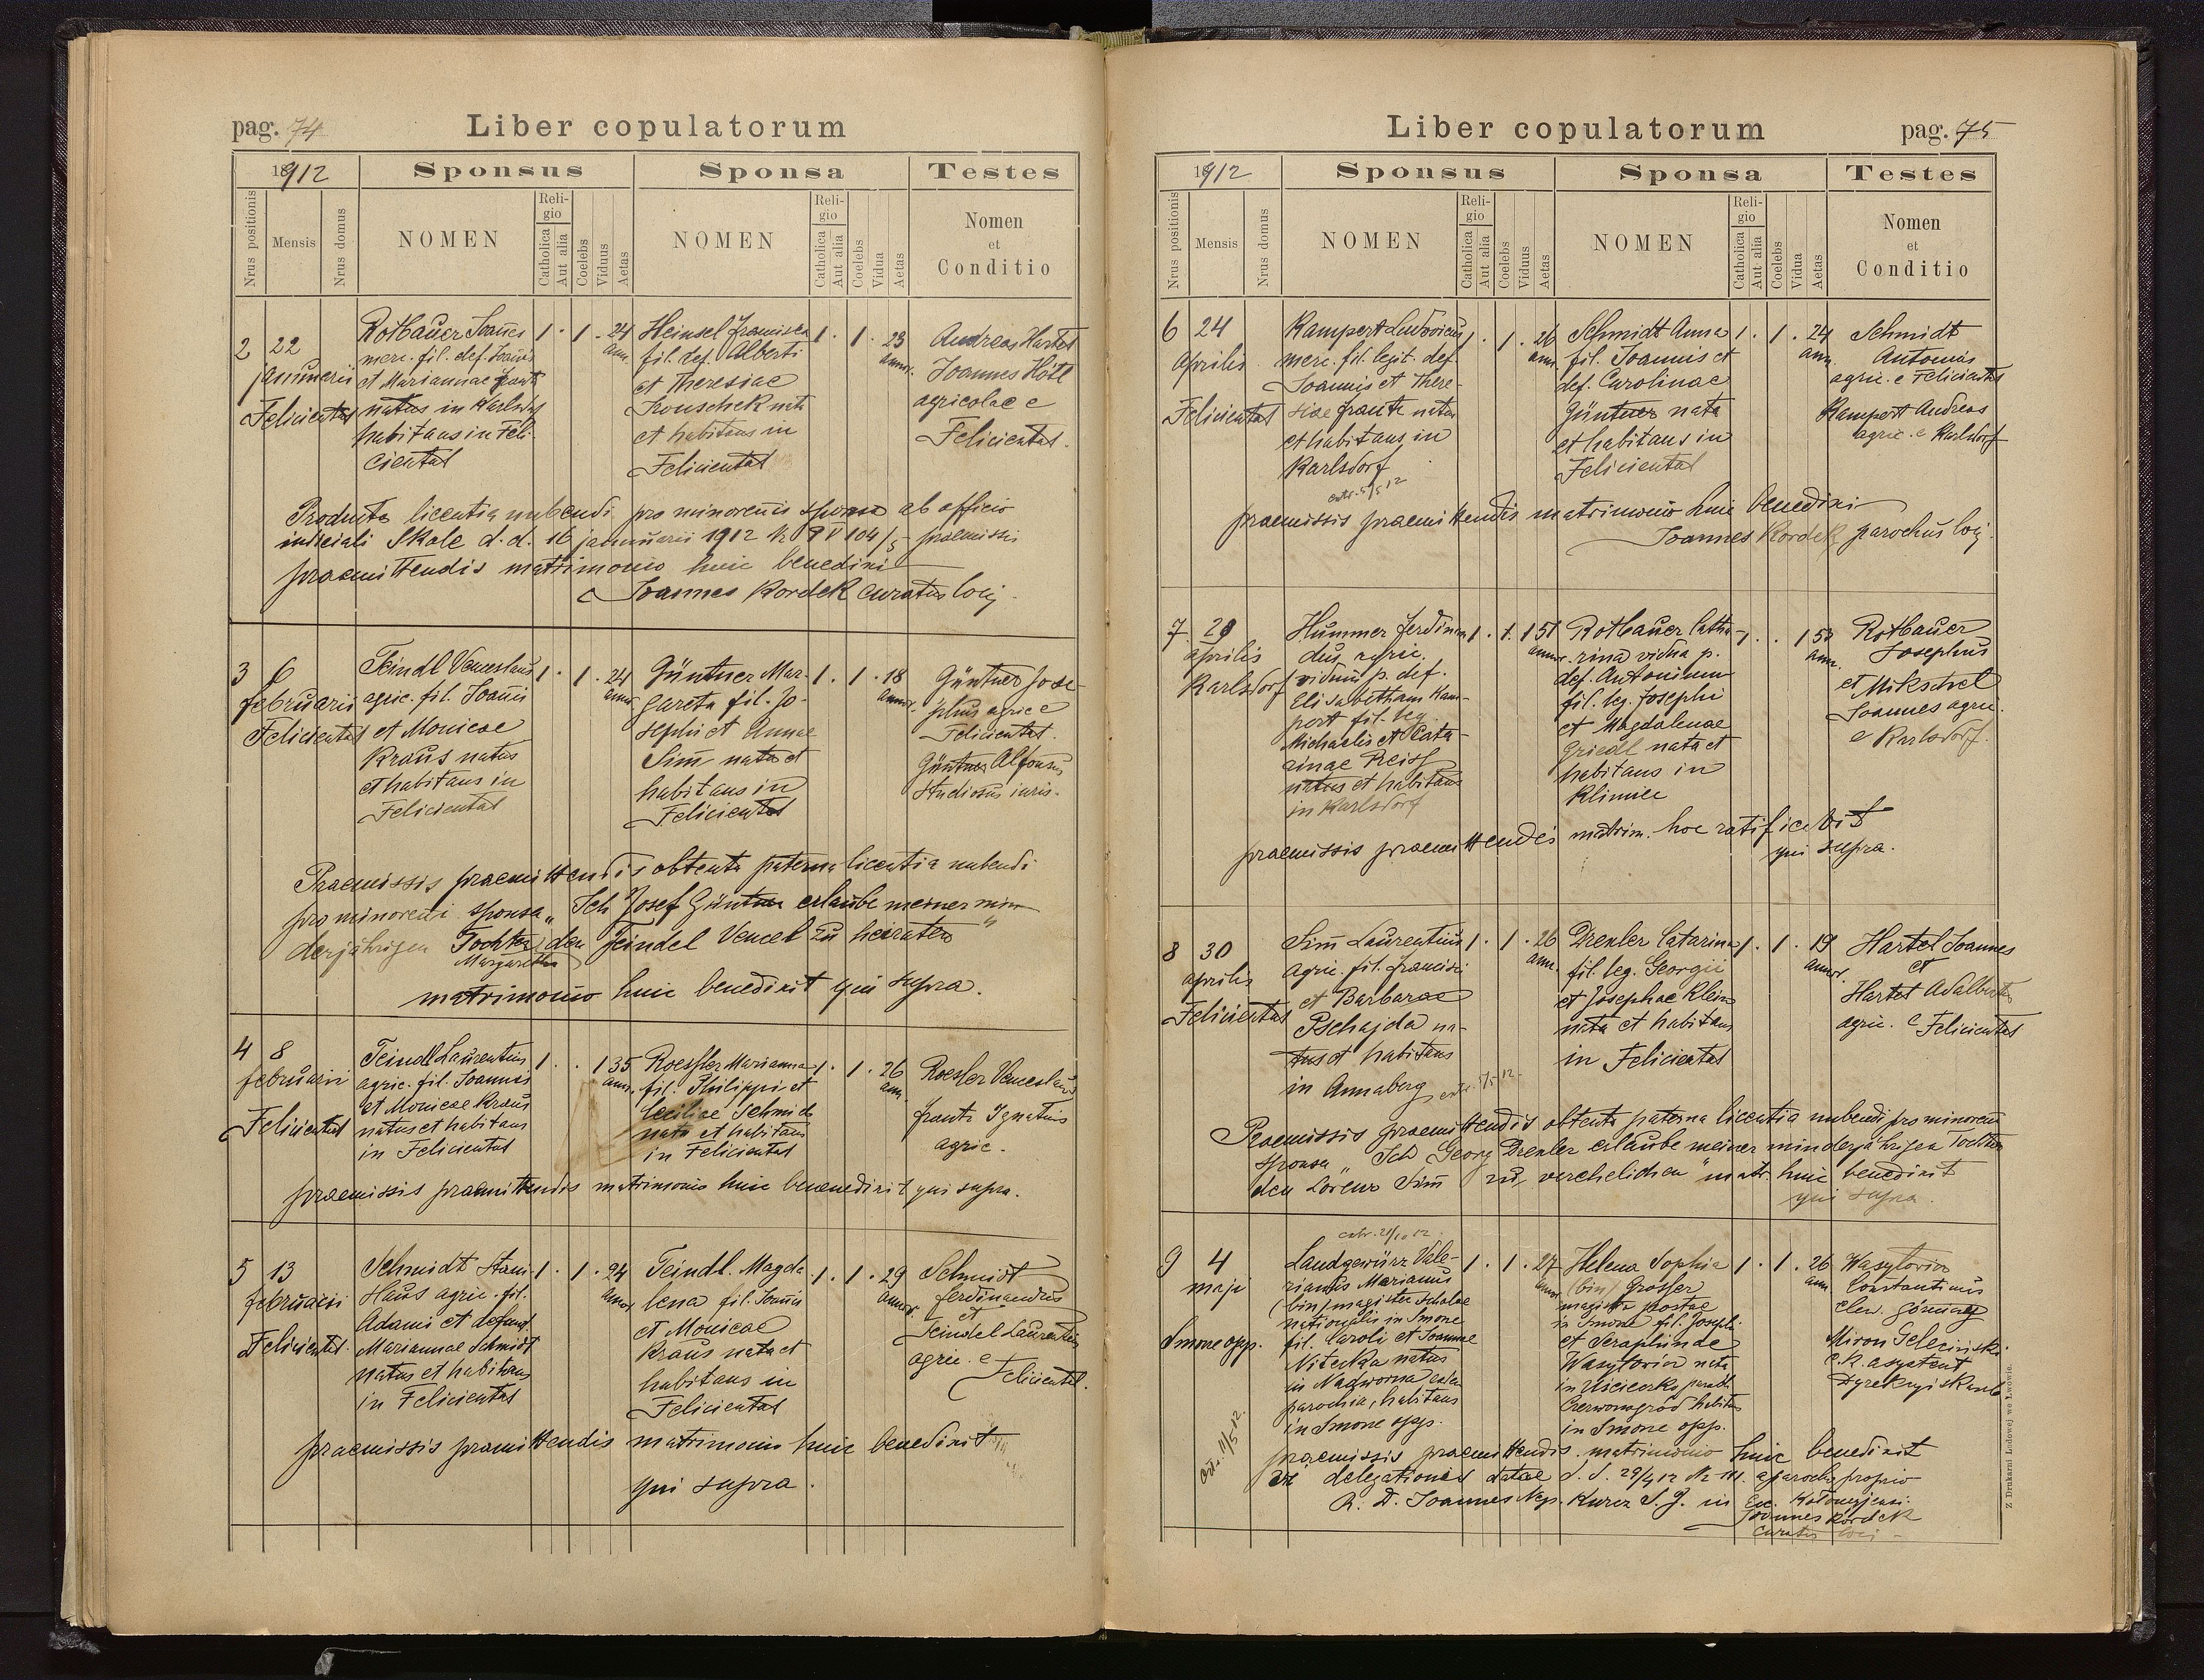 pag. 74
Liber copulatorum
1912
Sponsus
Sponsa
Testes
Nrus positionis
Mensis
Nrus domus
NOMEN
Religio
Catholica
Aut alia
Coelebs
Viduus
Aetas
NOMEN
Religio
Catholica
Aut alia
Coelebs
Vidua
Aetas
Nomen
et
Conditio
2 22
januarii
Feliciental
Rotbauer Joannes
merc. fil. def. Joannis
et Mariannae Frantz
natus in Karlsdorf
habitans in Feli-
ciental
1 . 1 . 24
ann.
Heinsel Francisca
fil. def. Alberti
et Theresiae
Trouschek nata
et habitans in
Feliciental
1 . 1 . 23
annor.
Andreas Hartel
Joannes Hötl
agricolae e
Feliciental.
Producta licentia nubendi pro minorenis sponsa ab officio
iudiciali Skole d. d. 16 januarii 1912 N 9 V 104/5 praemissis
praemittendis matrimonio huic benedixi
Joannes Kordek curatus loci.
3 6
februarii
Feliciental
Teindl Venceslaus
agric. fil. Joannis
et Monicae
Kraus natus
et habitans in
Feliciental
1 . 1 . 24
annor.
Güntner Mar-
gareta fil. Jo-
sephi et Annae
Sim̄ nata et
habitans in
Feliciental
1 . 1 . 18
annor.
Güntner Jose-
phus agric e
Feliciental.
Güntner Alfonsus
studiosus iuris.
Praemissis praemittendis obtenta paterna licentia nubendi
pro minoreni sponsa „Ich Josef Güntner erlaube meiner min-
derjährigen Tochter den Teindel Vencel zu heiraten"
Margaretha
matrimonio huic benedixit qui supra.
4 8
februarii
Feliciental
Teindl Laurentius
agric. fil. Joannis
et Monicae Kraus
natus et habitans
in Feliciental
1 . . 1 35
ann.
Roessler Marianna
fil. Philippi et
Ceciliae Schmidt
nata et habitans
in Feliciental
1 . 1 . 26
ann.
Roesler Venceslaus
Frantz Ignatius
agric.
praemissis praemittendis matrimonio huic benenedixit qui supra.
5 13
februarii
Feliciental.
Schmidt Stani-
slaus agric. fil.
Adami et defunct.
Mariannae Schmidt
natus et habitans
in Feliciental
1 . 1 . 24
annor.
Teindl. Magda
lena fil. Joannis
et Monicae
Kraus nata et
habitans in
Feliciental
1 . 1 . 29
annor.
Schmidt
Ferdinandus
et
Teindel Laurentius
agric. e
Feliciental.
praemissis pramittendis matrimonio huic benedixit
qui supra.
Liber copulatorum
pag. 75
1912
Sponsus
Sponsa
Testes
Nrus positionis
Mensis
Nrus domus
NOMEN
Religio
Catholica
Aut alia
Coelebs
Viduus
Aetas
NOMEN
Religio
Catholica
Aut alia
Coelebs
Vidua
Aetas
Nomen
et
Conditio
6 24
Aprilis
Feliciental
Rampert Ludovicus
merc. fil. legit. def.
Joannis et There-
siae Frantz natus
et habitans in
Karlsdorf
extr. 5/5 12
1 . 1 . 26
ann.
Schmidt Anna
fil. Joannis et
def. Carolinae
Güntner nata
et habitans in
Feliciental
1 . 1 . 24
ann.
Schmidt
Antonius
agric. e Feliciental
Rampert Andreas
agric. e Karlsdorf
praemissis praemittendis matrimonio huic benedixi
Joannes Kordek parochus loci.
7 29
aprilis
Karlsdorf
Hummer Ferdinan
dus agric.
viduus p. def.
Elisabetham Ram-
pert fil. leg.
Michaelis et Cata-
rinae Reiss
natus et habitans
in Karlsdorf
1 . 1. 1 51
annor.
Rotbauer Catha-
rina vidua p.
def. Antonium
fil. leg. Josephi
et Magdalenae
Griedl nata et
habitans in
Klimiec
1 . . 1 52
ann.
Rotbauer
Josephus
et Mikschel
Joannes agric.
e Karlsdorf.
praemissis praemittendis matrim. hoc ratificabit
qui supra.
8 30
aprilis
Feliciental
Sim̄ Laurentius
agric. fil. Francisci
et Barbarae
Pschajda na-
tus et habitans
in Annaberg
1 . 1 . 26
ann.
Drexler Catarina
fil. leg. Georgii
et Josephae Klein
nata et habitans
in Feliciental
1 . 1 . 19
annor.
Hartel Joannes
et
Hartel Adalbertus
agric. e Feliciental
Praemissis praemittendis obtenta paterna licentia nubendi pro minoren
sponsa „Ich Georg Drexler erlaube meiner minderjährigen Tochter
den Lorenz Sim̄ zu verehelichen" matr. huic benedixit
qui supra.
extr. 21/10 12.
9 4
maji
Smorze opp.
Landgewürz Vale-
rianus Marianus
(bin) magister scholae
nationalis in Smorze
fil. Caroli et Joannae
Nitecka natus
in Nadworna eadem
parochia, habitans
in Smorze opp.
1 . 1 . 27
annor.
Helena Sophia
(bin) Grosser
magistra postae
in Smorze fil. Josephi
et Seraphinae
Wasylovicz nata
in Uścieczko paroch.
Czerwonogród habitans
in Smorze opp.
1 . 1 . 26
ann.
Wasylovicz
Constantinus
elev. górniczy
Miron Seleciński
c. k. asystent
Dyrekcyi skarb.
praemissis praemittendis matrimonio huic benedixit
vi delegationis datae d. d. 29/4 12 N. 111. a parocho proprio
R. D. Joannes Nep. Kurcz S. J. in Exc. Kołomyjensi.
Joannes Kordek
curatus loci
Z Drukarni Ludowej we Lwowie.